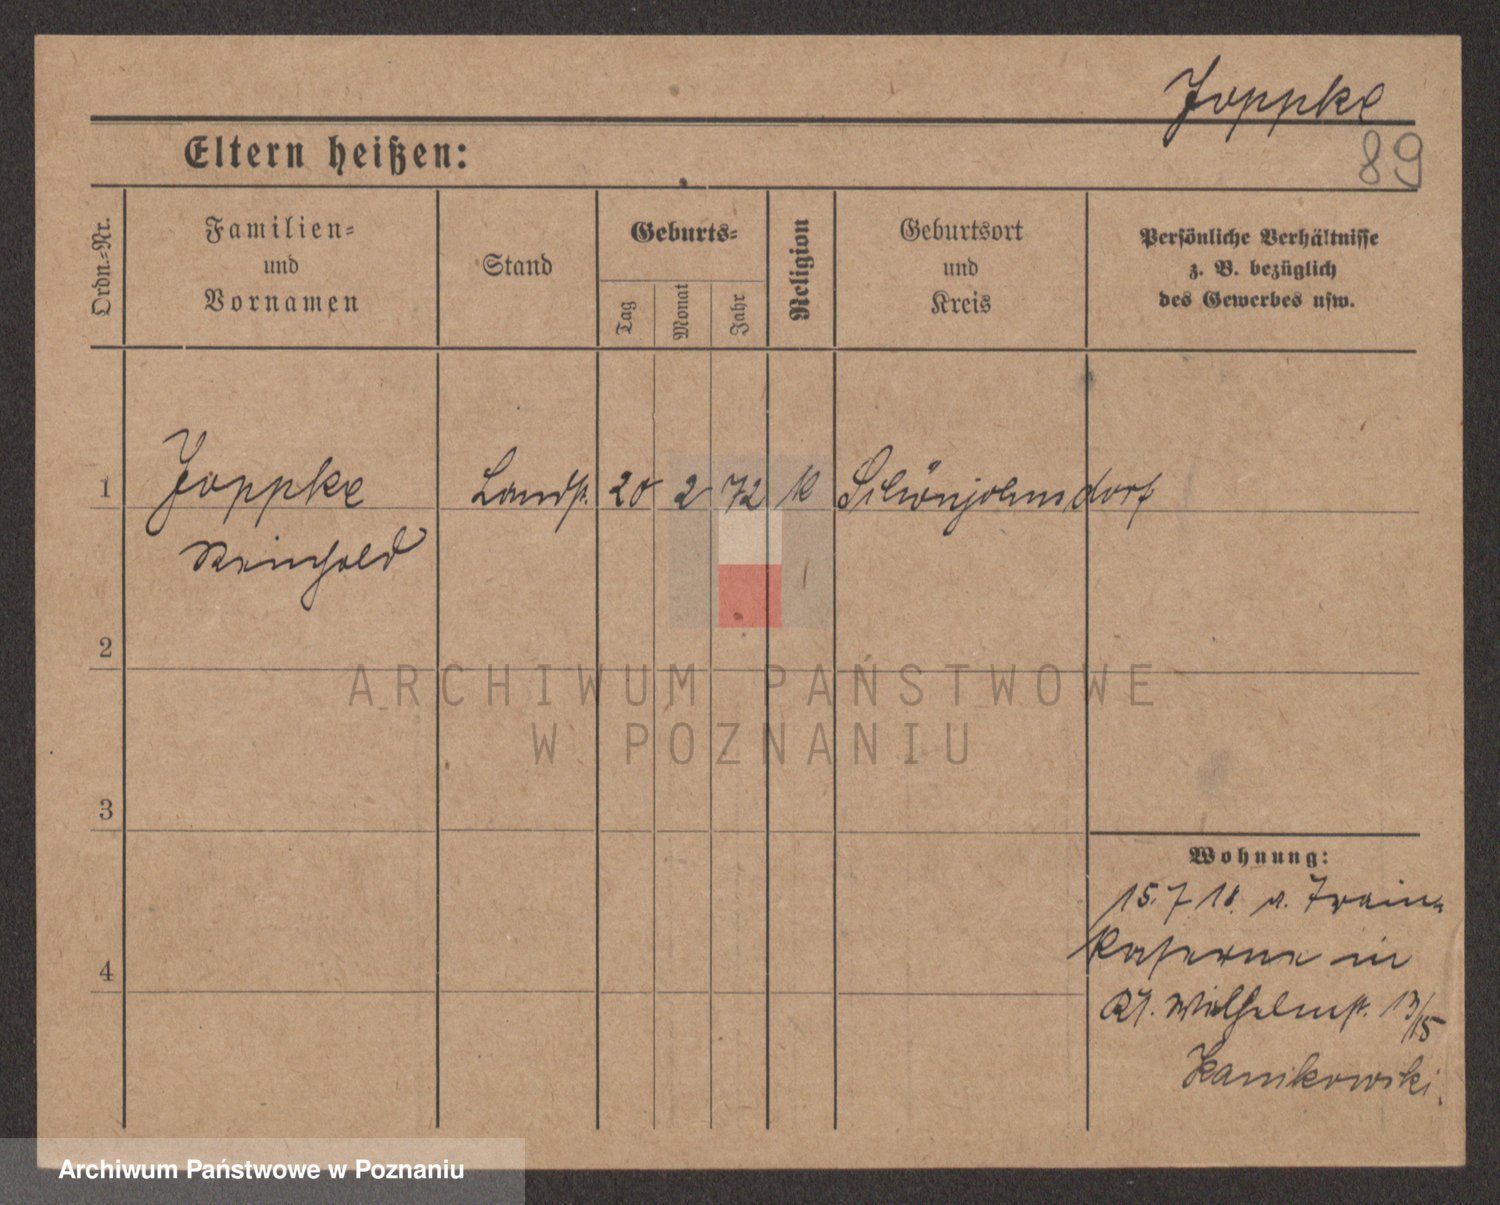 Joppke
89
Eltern heißen:
Ordn.-Nr.
Familien-
und
Vornamen
Stand
Geburts-
Tag
Monat
Jahr
Religion
Geburtsort
und
Kreis
Persönliche Verhältnisse
z. B. bezüglich
des Gewerbes usw.
1
Joppke
Reinhold
Landst.
20
2
72
K
Schönjohnsdorf
2
ARCHIWUM PAŃSTWOWE
W POZNANIU
3
4
Wohnung:
15.7 18. a. Train-
Kaserne in
Kl. Wilhelmst. 13/15
Kanikowski.
Archiwum Państwowe w Poznaniu